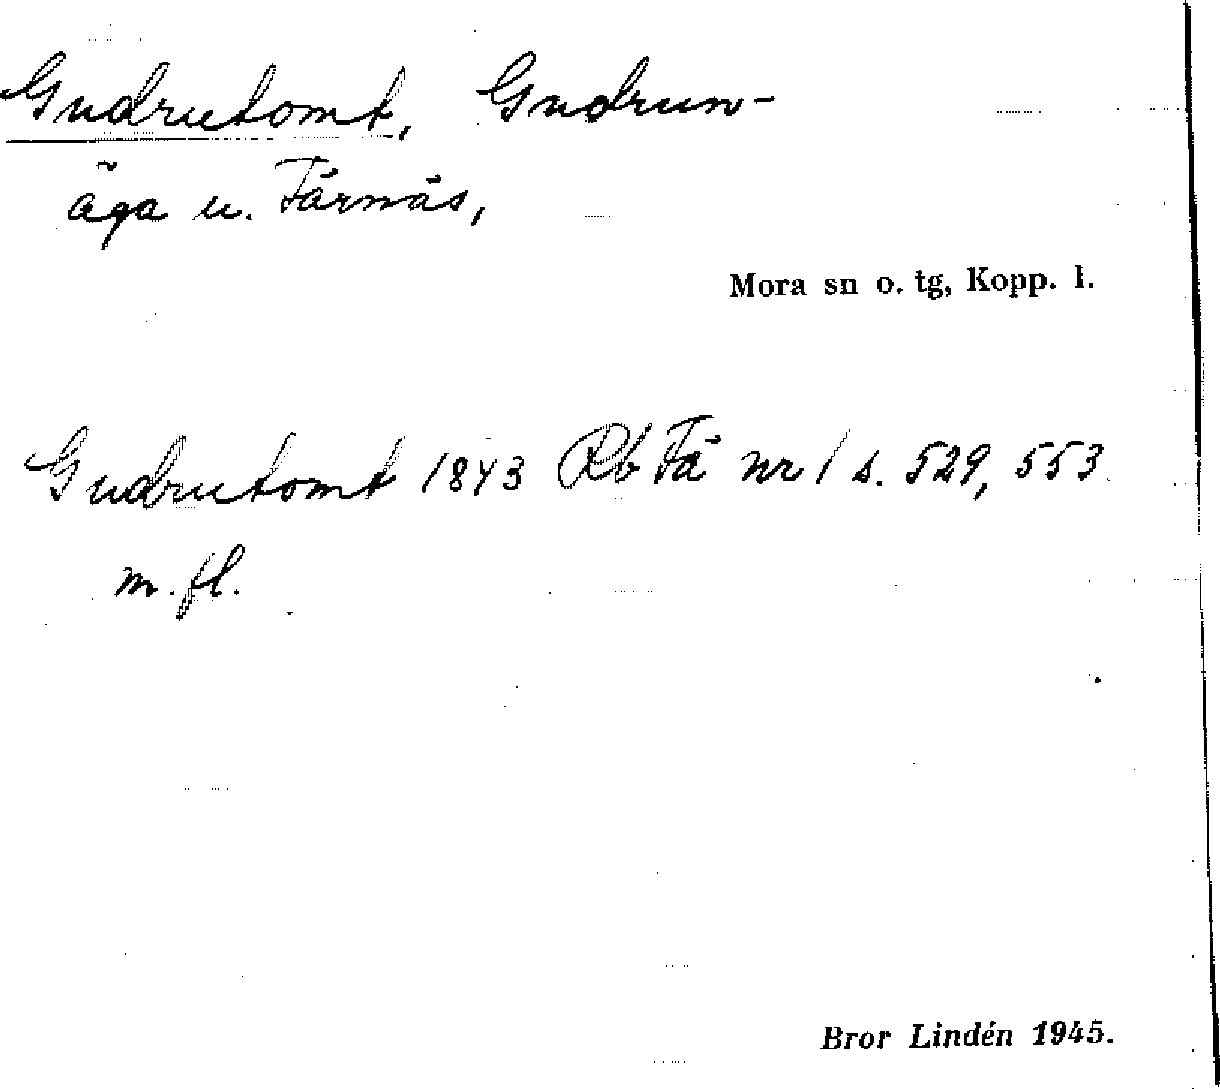 Gudrutomt, Gudrun-
äga u. Färnäs,
Mora sn o. tg, Kopp. l.
Gudrutomt 1843 Rb Fä nr 1 s. 529, 553
m. fl.
Bror Lindén 1945.